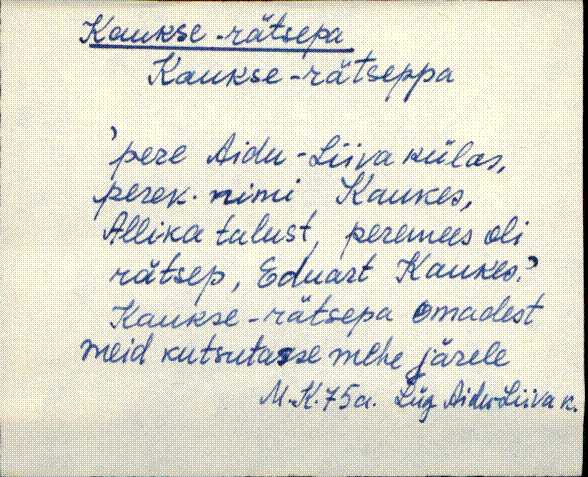 Kaukse-rätsepa
Kaukse-rätseppa
'pere Aidu-Liiva külas,
perek. nimi Kaukes,
Allika talust, peremees oli
rätsep, Eduart Kaukes.'
Kaukse-rätsepa omadest
meid kutsutasse mehe järele
M.K.75a. Lüg Aidu-Liiva k.